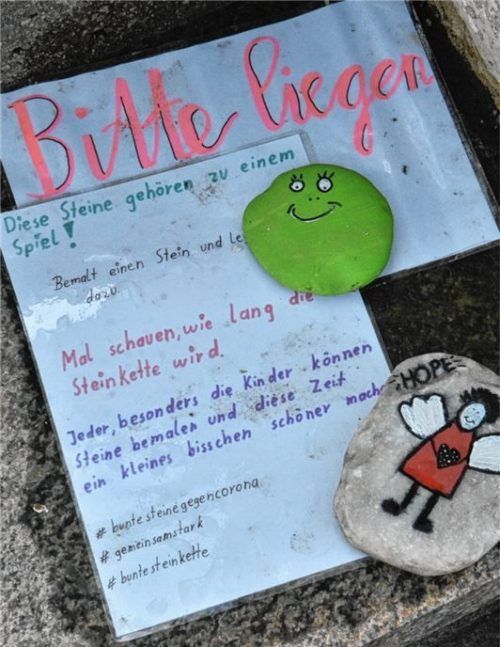 Bitte liegen
Diese Steine gehören zu einem
Spiel!
Bemalt einen Stein und
dazu
Mal schauen, wie lang die
Steinkette wird.
Jeder, besonders die Kinder können
Steine bemalen und diese Zeit
ein kleines bisschen schöner
#buntesteinegegencorona
#gemeinsamstark
#buntesteinkette
HOPE